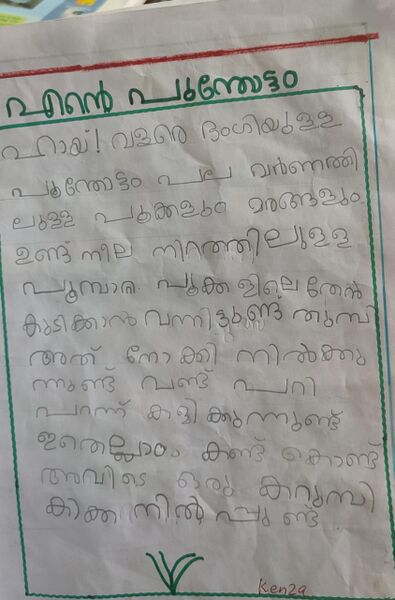 എന്റെ പൂന്തോട്ടം
ഹായ്! വളരെ ഭംഗിയുള്ള
പൂന്തോട്ടം പല വർണ്ണത്തി
ലുള്ള പൂക്കളും മരങ്ങളും
ഉണ്ട് നീല നിറത്തിലുള്ള
പൂമ്പാറ്റ പൂക്കളിലെ തേൻ
കുടിക്കാൻ വന്നിട്ടുണ്ട് തുമ്പി
അത് നോക്കി നിൽക്കു
ന്നുണ്ട് വണ്ട് പറി
പറന്ന് കളിക്കുന്നുണ്ട്
ഇതെല്ലാം കണ്ട് കൊണ്ട്
അവിടെ ഒരു കുറുമ്പി
കാക്ക നിൽപ്പുണ്ട്
Kenza